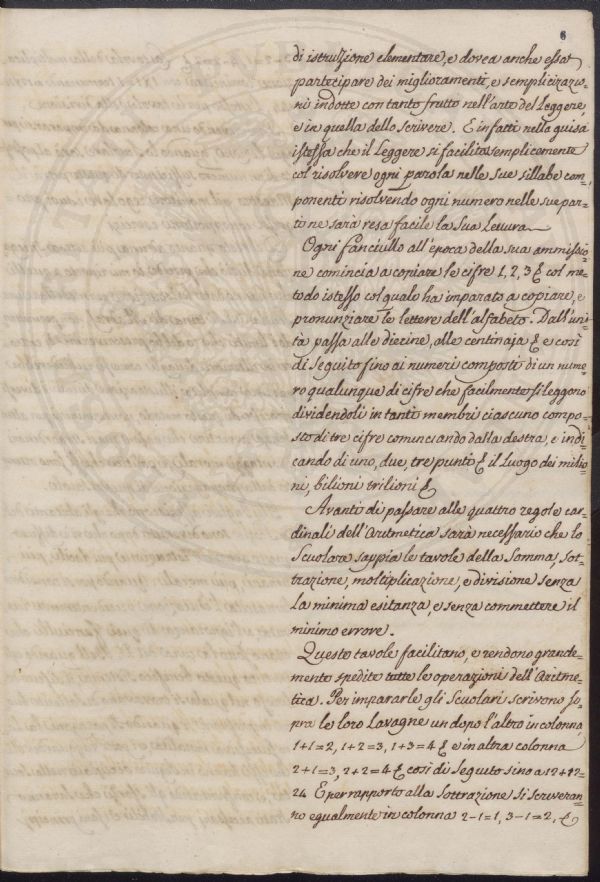 6
di istruzione elementare, e dovea anche essa
partecipare dei miglioramenti, e semplicizazio=
ni indotte con tanto frutto nell'arte del Leggere,
e in quella dello scrivere. E infatti nella guisa
istessa che il Leggere si facilita semplicemente
col risolvere ogni parola nelle sue sillabe com=
ponenti risolvendo ogni numero nelle sue par=
ti ne sarà resa facile la sua lettura.
Ogni fanciullo all'epoca della sua ammissio=
ne comincia a copiare le cifre 1, 2, 3 & col me=
todo istesso col quale ha imparato a copiare, e
pronunziare le lettere dell'alfabeto. Dall'uni=
tà passa alle diecine, alle centinaja & e così
di seguito fino ai numeri composti di un nume=
ro qualunque di cifre che facilmente si leggono
dividendoli in tanti membri ciascuno compo=
sto di tre cifre cominciando dalla destra, e indi=
cando di uno, due, tre punto & il Luogo dei milio=
ni, bilioni trilioni &
Avanti di passare alle quattro regole car=
dinali dell'Aritmetica sarà necessario che lo
Scuolare sappia le tavole della Somma, sot=
trazione, moltiplicazione, e divisione senza
la minima esitanza, e senza commettere il
minimo errore.
Queste tavole facilitano, e rendono grande=
mente spedite tutte le operazioni dell'Aritme=
tica. Per impararle gli Scuolari scrivono so=
pra le loro Lavagne un dopo l'altro in colonna
1+1=2, 1+2=3, 1+3=4 & e in altra colonna
2+1=3, 2+2=4 & così di seguito sino a 12+12=
24 E per rapporto alla Sottrazione si scriveran=
no egualmente in colonna 2-1=1, 3-1=2, &